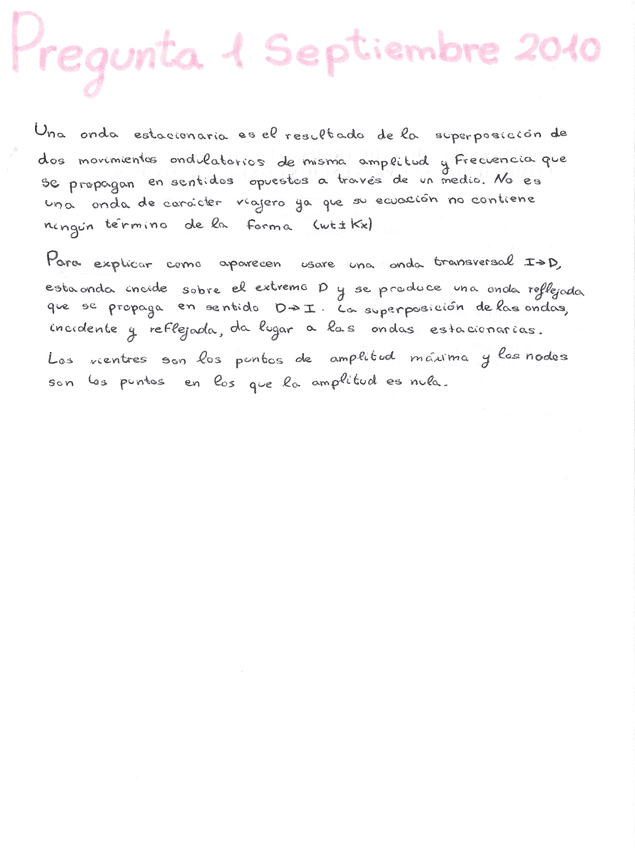 Pregunta 1 Septiembre 2010
Una onda estacionaria es el resultado de la superposición de
dos movimientos ondulatorios de misma amplitud y frecuencia que
se propagan en sentidos opuestos a través de un medio. No es
una onda de carácter viajero ya que su ecuación no contiene
ningún término de la forma (wt ± Kx)
Para explicar como aparecen usare una onda transversal I→D,
esta onda incide sobre el extremo D y se produce una onda reflejada
que se propaga en sentido D→I. La superposición de las ondas,
incidente y reflejada, da lugar a las ondas estacionarias.
Los vientres son los puntos de amplitud máxima y los nodos
son los puntos en los que la amplitud es nula.